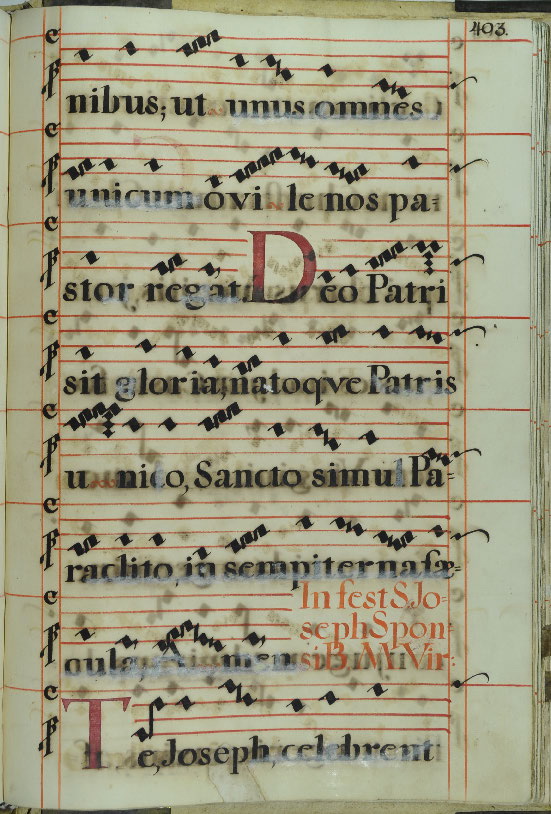 403.
nibus; ut unus omnes
unicum ovi le nos pa=
stor regat. Deo Patri
sit gloria, natoqve Patris
u nico, Sancto simul Pa=
raclito, in sempiterna sæ=
cula. men
In fest S. Jo=
seph Spon=
si B. M. Vir.
Te, Joseph, celebrent